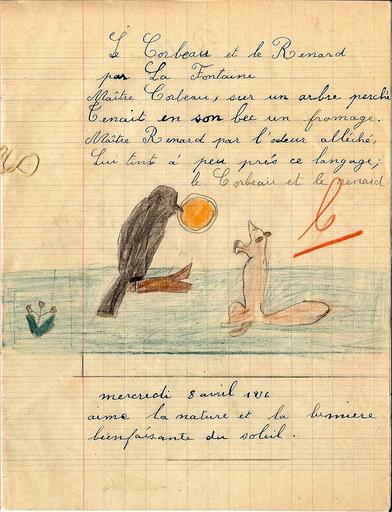 Le Corbeau et le Renard
par La Fontaine
Maître Corbeau, sur un arbre perché
Tenait en son bec un fromage.
Maître Renard par l'odeur alléché,
Lui tint à peu près ce langage;
le Corbeau et le renard
mercredi 8 avril 1936
aime la nature et la lumière
bienfaisante du soleil.